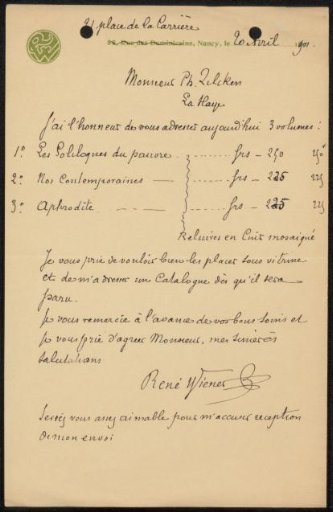 21 place de la Carrière
28, Rue des Dominicains, Nancy, le 20 Avril 1901
Monsieur Ph. Zilcken
La Haye
J'ai l'honneur de vous adresser aujourd'hui 3 volumes :
1º Les Soliloques du pauvre frs — 250 250
2º Nos Contemporaines — frs — 225 225
3º Aphrodite frs — 225 225
Reliures en Cuir mosaïqué
Je vous prie de vouloir bien les placer sous vitrine
et de m'adresser un Catalogue dès qu'il sera
paru.
Je vous remercie à l'avance de vos bons soins et
je vous prie d'agréer Monsieur, mes sincères
salutations
René Wiener
Seriez vous assez aimable pour m'accuser réception
de mon envoi